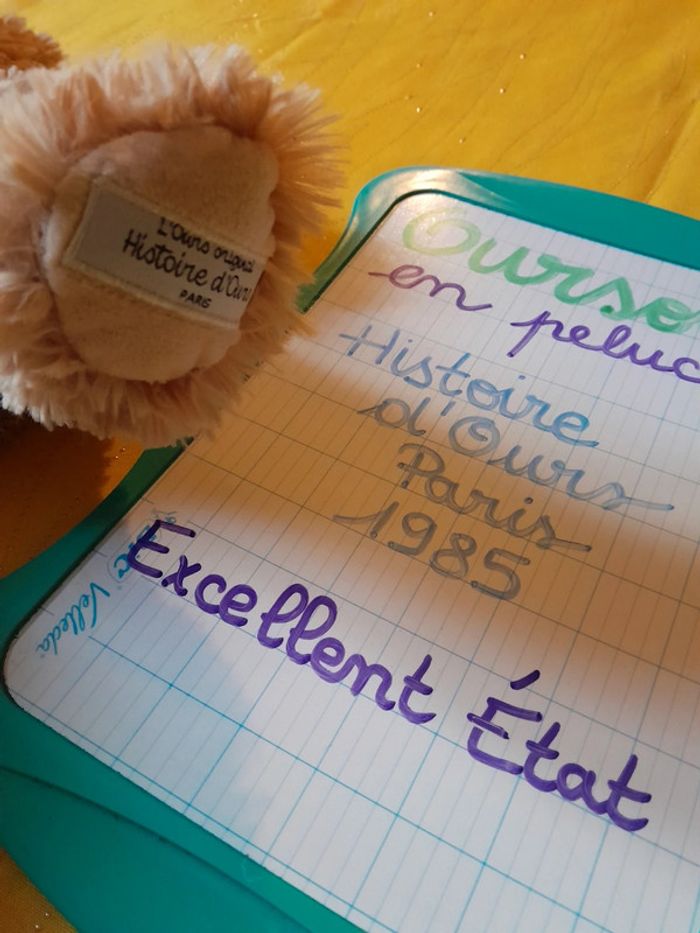 L'Ours original
Histoire d'Ours
PARIS
Ourso
en peluc
Histoire
d'Ours
Paris
1985
Excellent État
Velleda